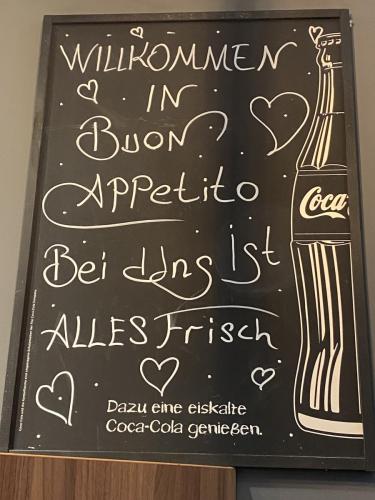 WILLKOMMEN
IN
BUON
APPetito
Bei Uns ist
ALLES Frisch
Dazu eine eiskalte
Coca-Cola genießen.
Coca